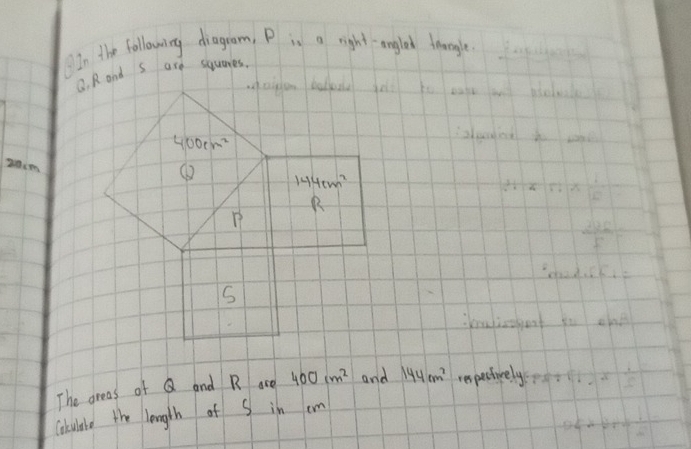 In the following diagram, P is a right-angled triangle.
Q, R and S are squares.
20cm
400cm²
Q
144cm²
R
P
S
The areas of Q and R are 400 cm² and 144cm² respectively.
Calculate the length of S in cm